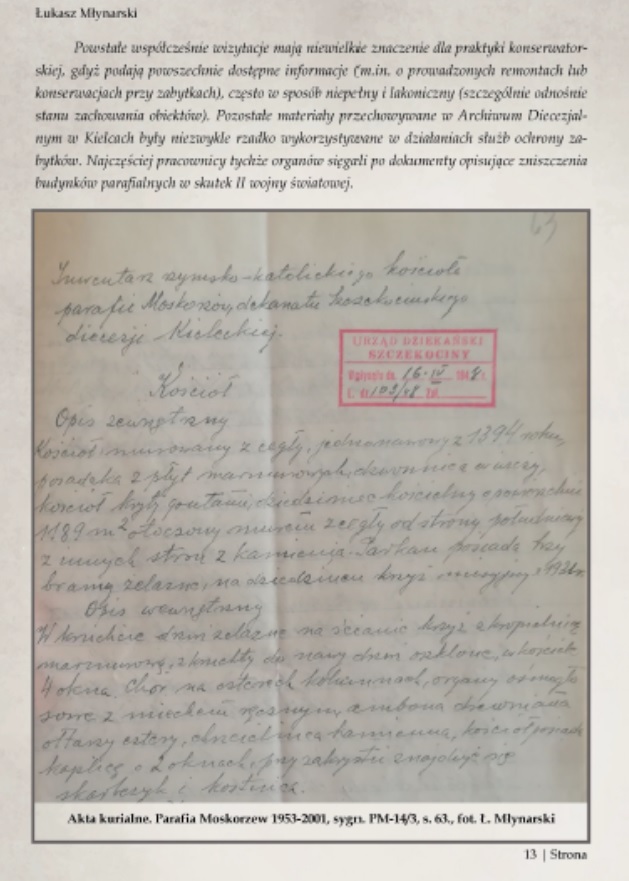 Łukasz Młynarski
Powstałe współcześnie wizytacje mają niewielkie znaczenie dla praktyki konserwator-
skiej, gdyż podają powszechnie dostępne informacje (m.in. o prowadzonych remontach lub
konserwacjach przy zabytkach), często w sposób niepełny i lakoniczny (szczególnie odnośnie
stanu zachowania obiektów). Pozostałe materiały przechowywane w Archiwum Diecezjal-
nym w Kielcach były niezwykle rzadko wykorzystywane w działaniach służb ochrony za-
bytków. Najczęściej pracownicy tychże organów sięgali po dokumenty opisujące zniszczenia
budynków parafialnych w skutek II wojny światowej.
63
Inwentarz rzymsko-katolickiego kościoła
parafii Moskorzów, dekanatu Szczekocińskiego
diecezji Kieleckiej.
URZĄD DZIEKAŃSKI
SZCZEKOCINY
Wpłynęło dn. 16.IV 1948 r.
L. dz. 103/48 Zał.
Kościół
Opis zewnętrzny
Kościół murowany z cegły, jednonawowy z 1394 roku,
posadzka z płyt marmurowych, dzwonnica w wieży,
kościół kryty gontami, dziedziniec kościelny o powierzchni
1189 m² otoczony murem z cegły od strony południowej
z innych stron z kamienia. Parkan posiada trzy
bramy żelazne, na dziedzińcu krzyż misyjny
Opis wewnętrzny
W kruchcie drzwi żelazne na ścianie krzyż z kropielnicą
marmurową, z kruchty do nawy drzwi oszklone, w kościele
4 okna. Chór na czterech kolumnach, organy
z miechem ręcznym, ambona drewniana
ołtarzy cztery, chrzcielnica kamienna, kościół posiada
kaplicę o 2 oknach, przy zakrystii znajduje się
skarbczyk i kostnica.
Akta kurialne. Parafia Moskorzew 1953-2001, sygn. PM-14/3, s. 63., fot. Ł. Młynarski
13 | Strona